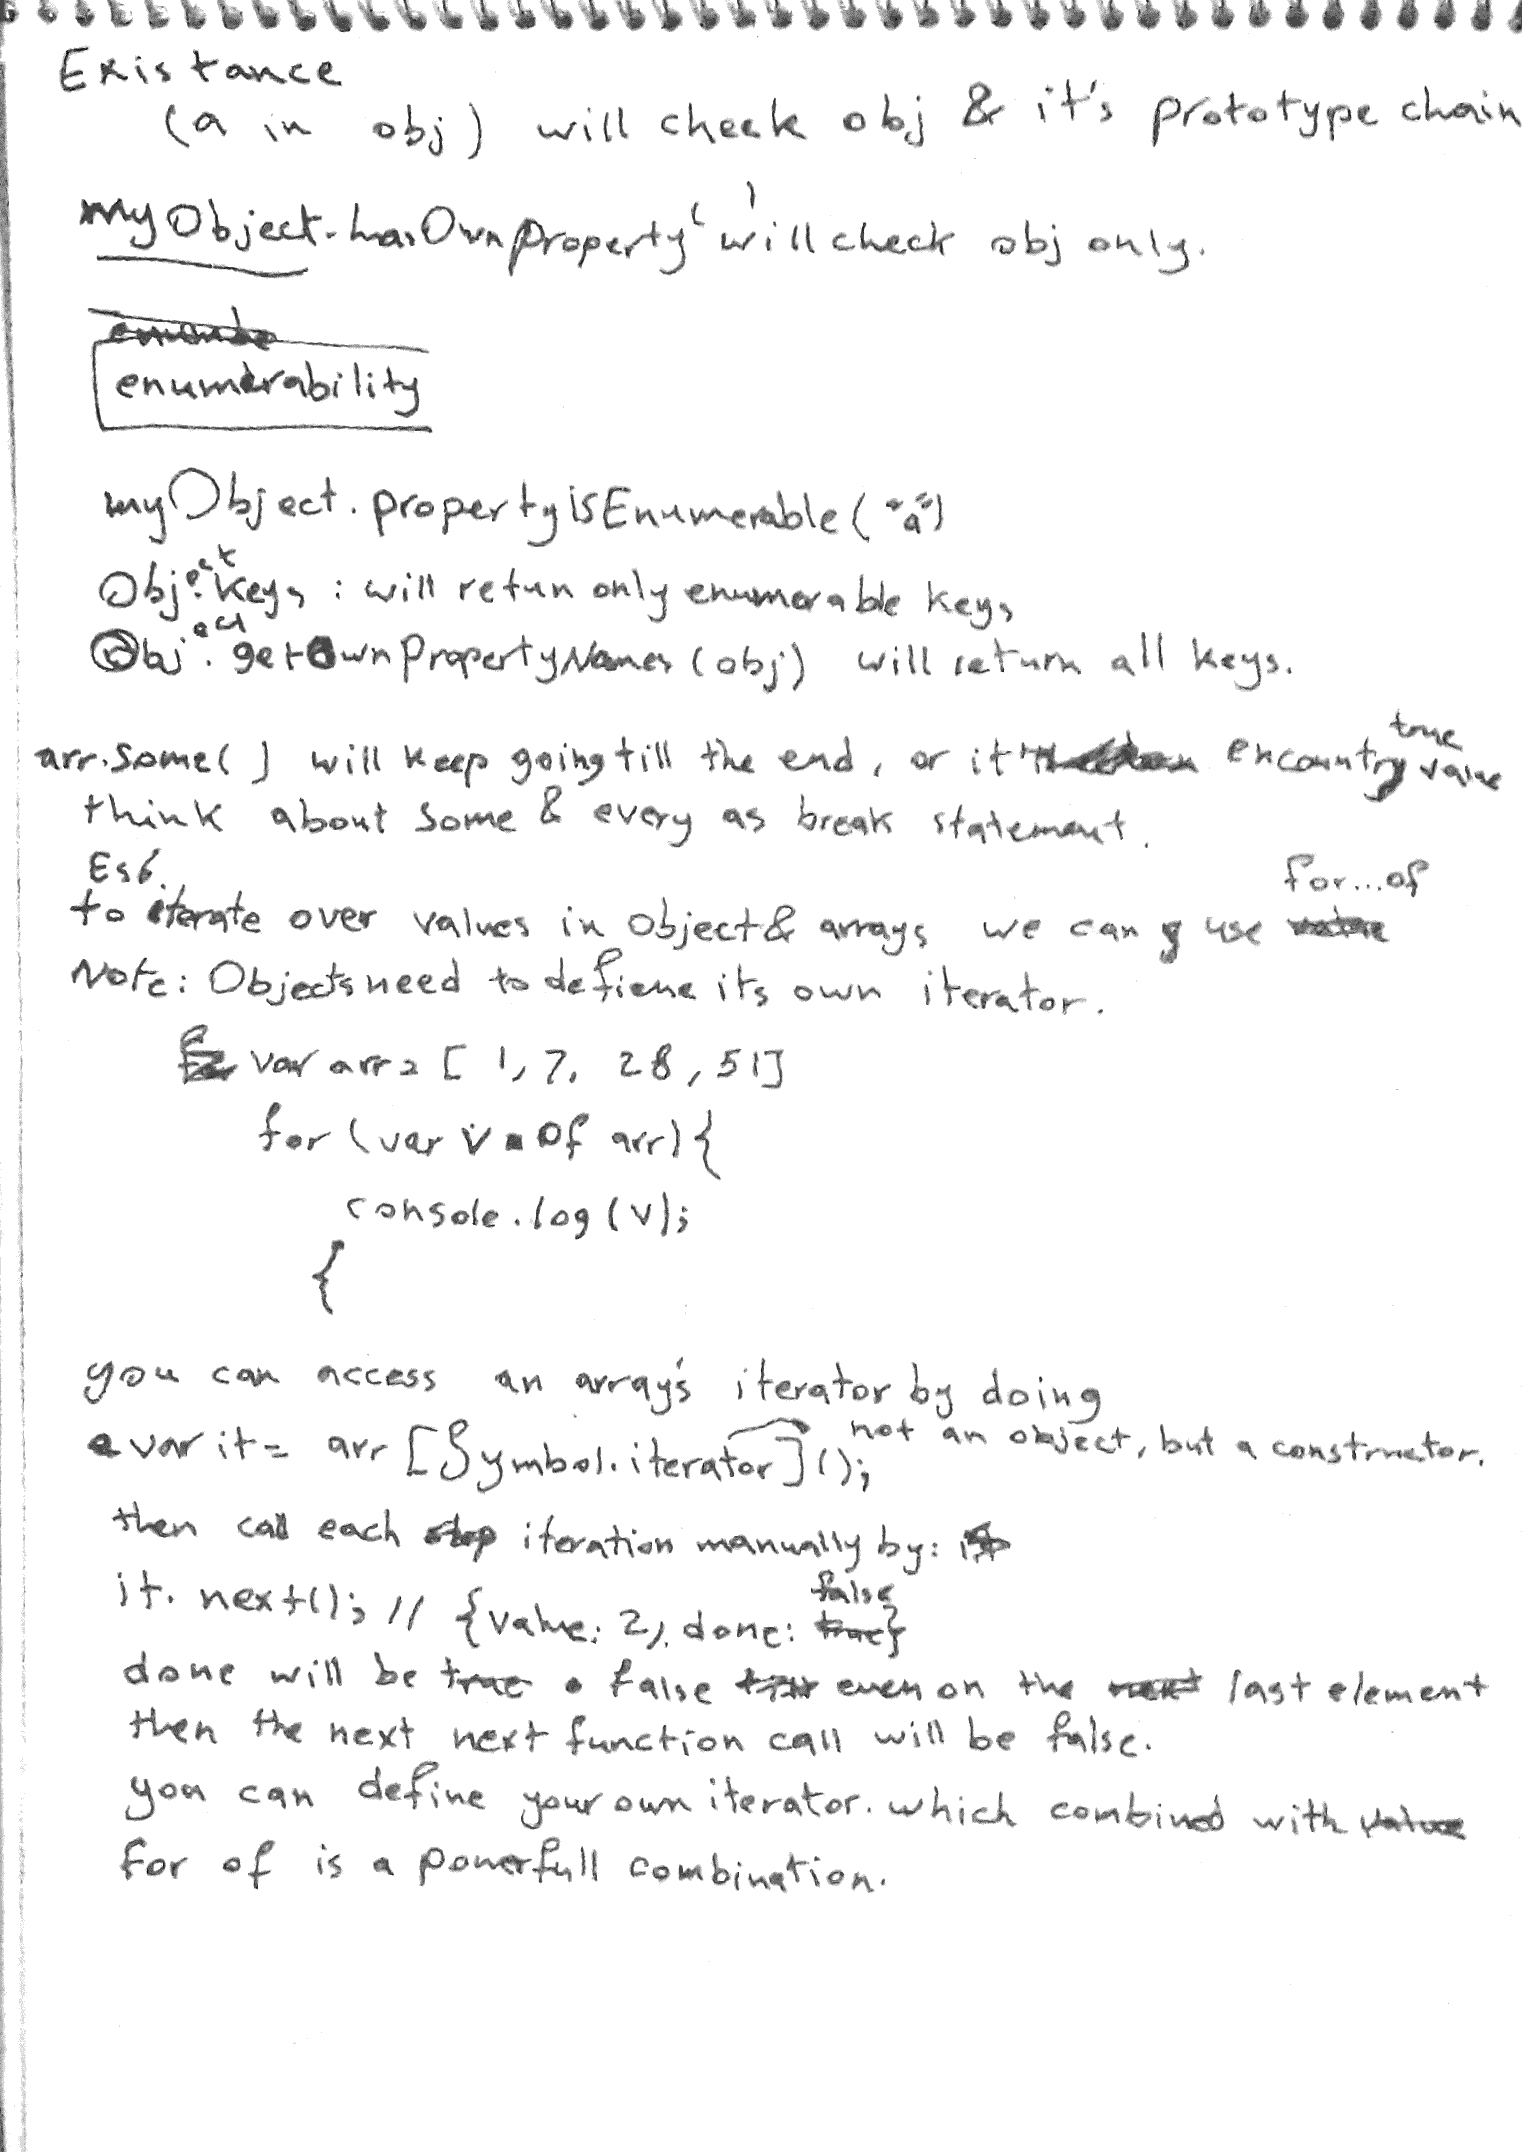 Existance
(a in obj) will check obj & it's prototype chain
myObject.hasOwnProperty( ) will check obj only.
enumerability
myObject.propertyisEnumerable("a")
Object.keys : will retun only enumerable keys
Object.getOwnPropertyNames(obj) will return all keys.
arr.some( ) will keep going till the end, or it encountry true value
think about some & every as break statement.
Es6.
to iterate over values in object & arrays we can use for...of
Note: Objects need to defiene its own iterator.
var arr = [ 1, 7, 28, 51]
for (var v of arr) {
console.log(v);
{
you can access an array's iterator by doing
var it = arr [Symbol.iterator](); not an object, but a constructor.
then call each iteration manually by:
it. next(); // {value: 2, done: false}
done will be false even on the last element
then the next next function call will be false.
you can define your own iterator. which combined with
for of is a powerfull combination.